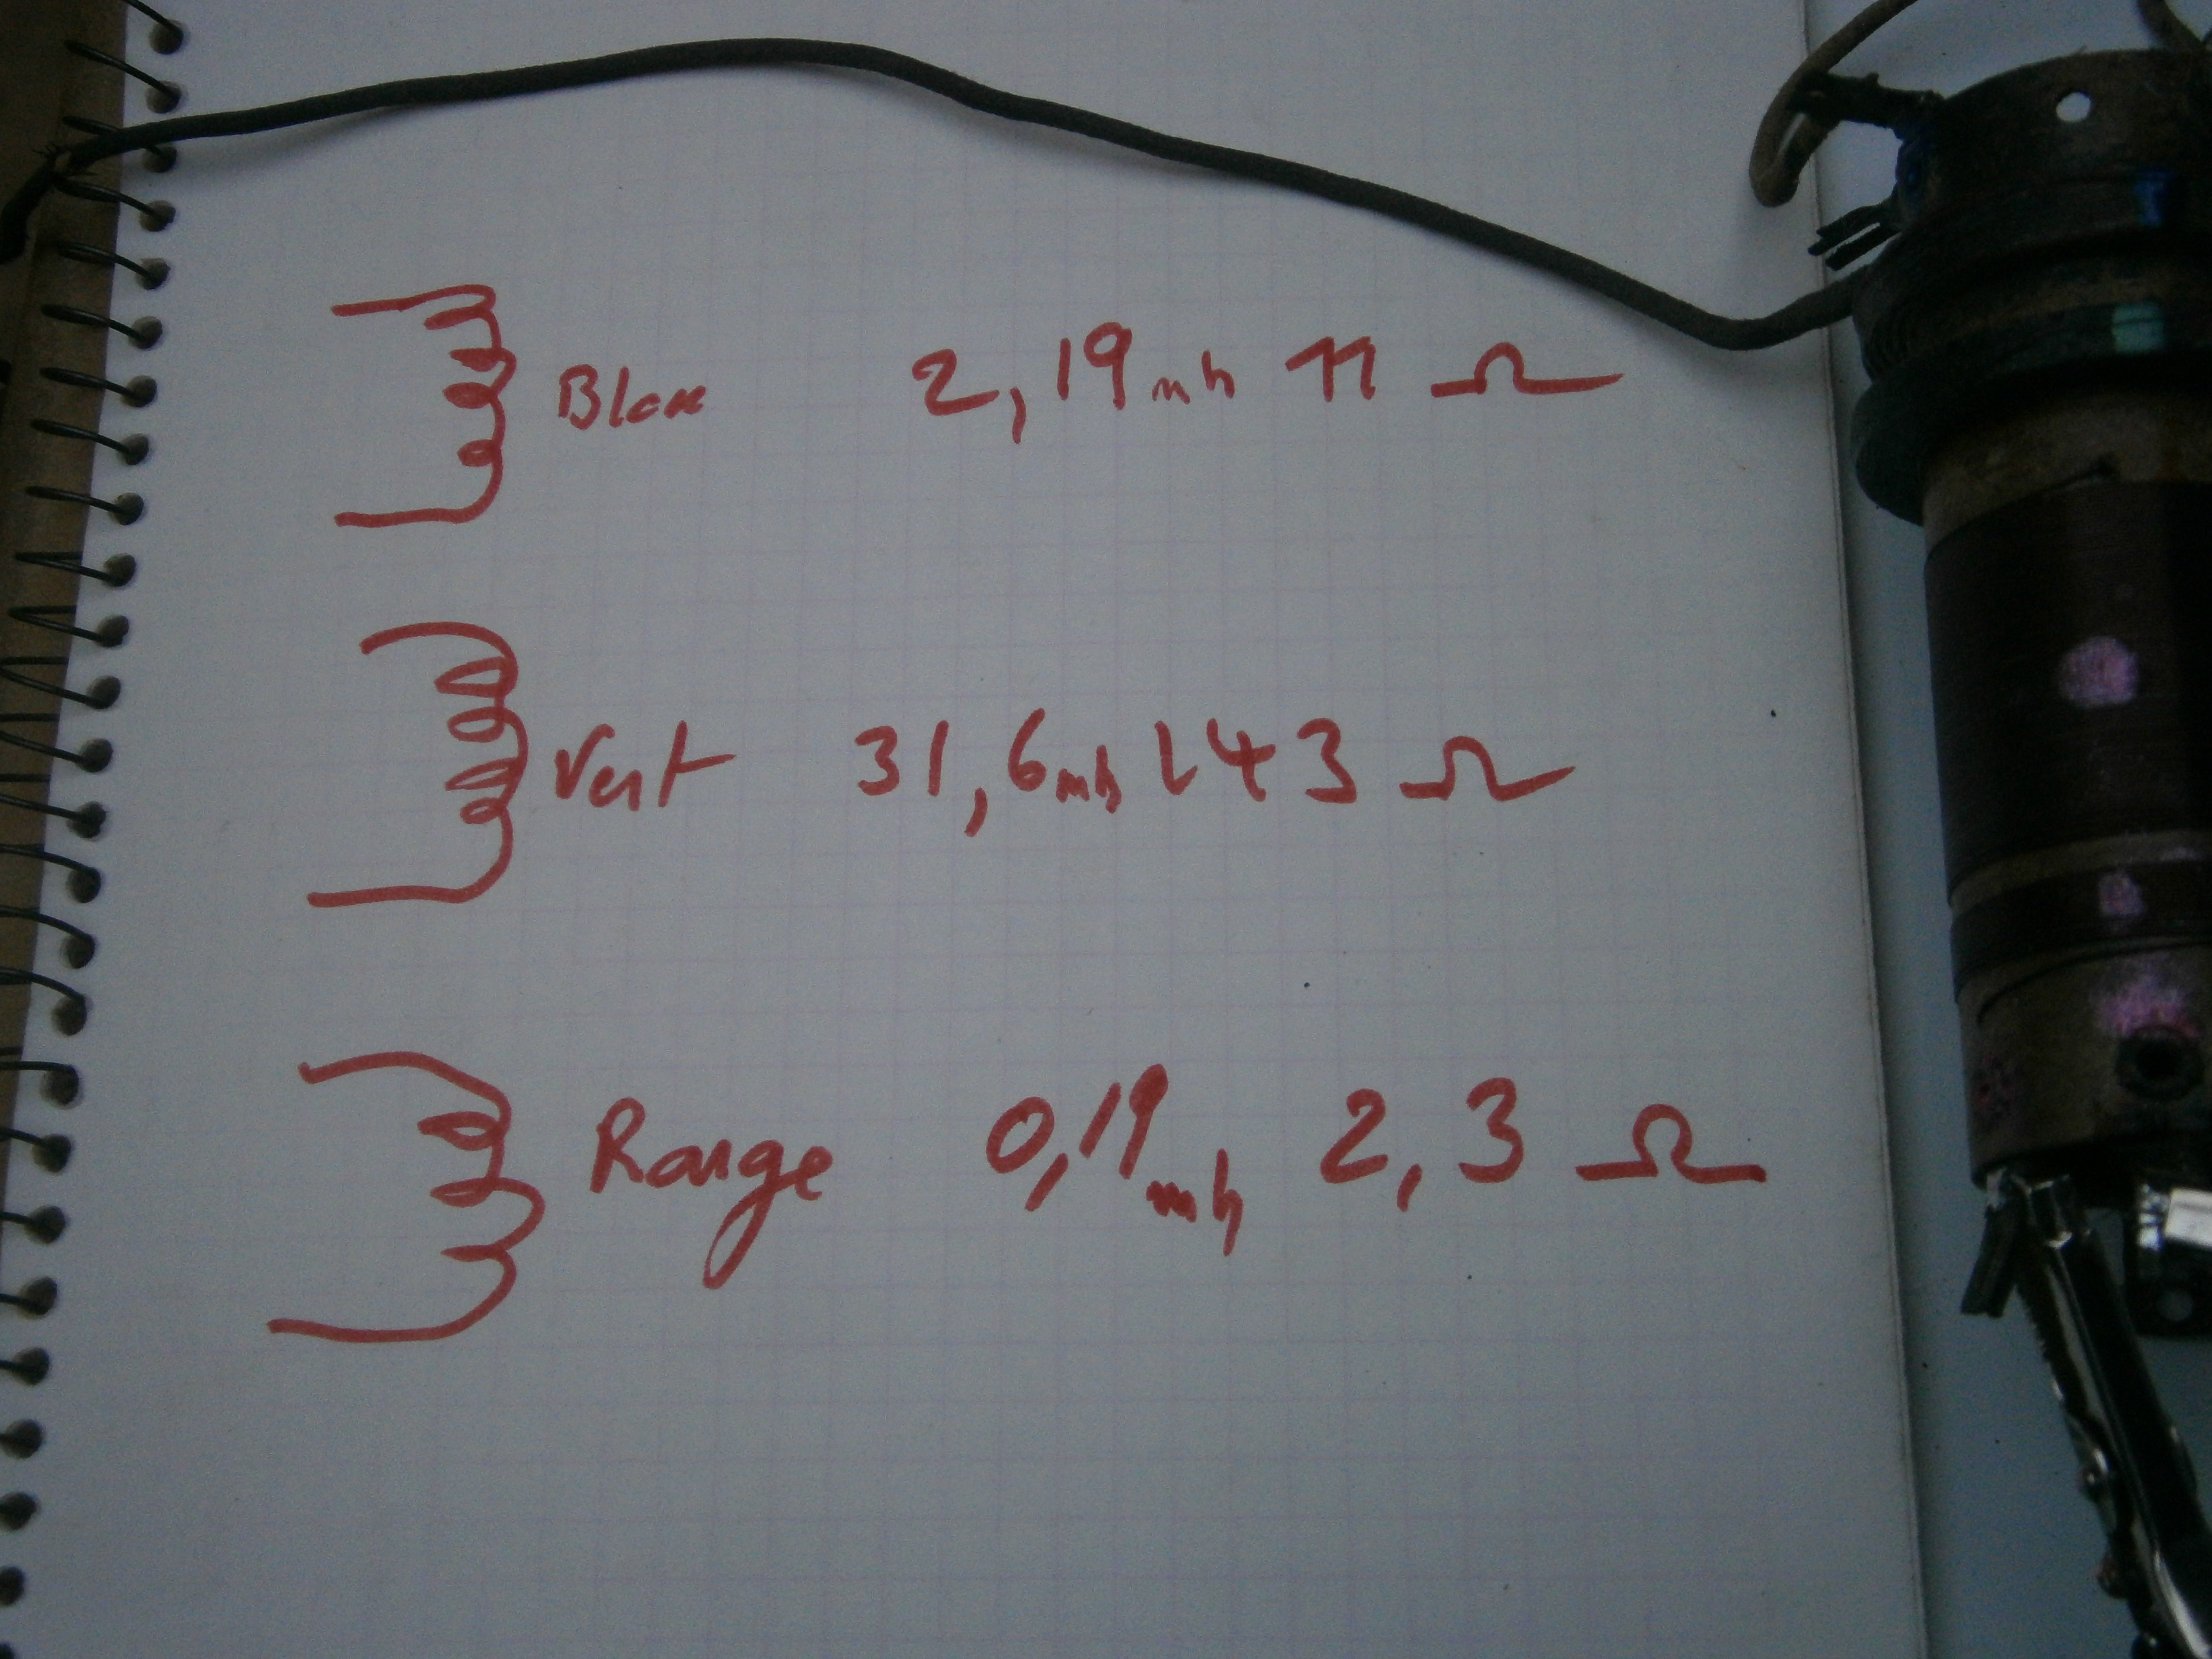 Blan 2,19 mh 11 Ω
Vert 31,6 mh 143 Ω
Rouge 0,19 mh 2,3 Ω